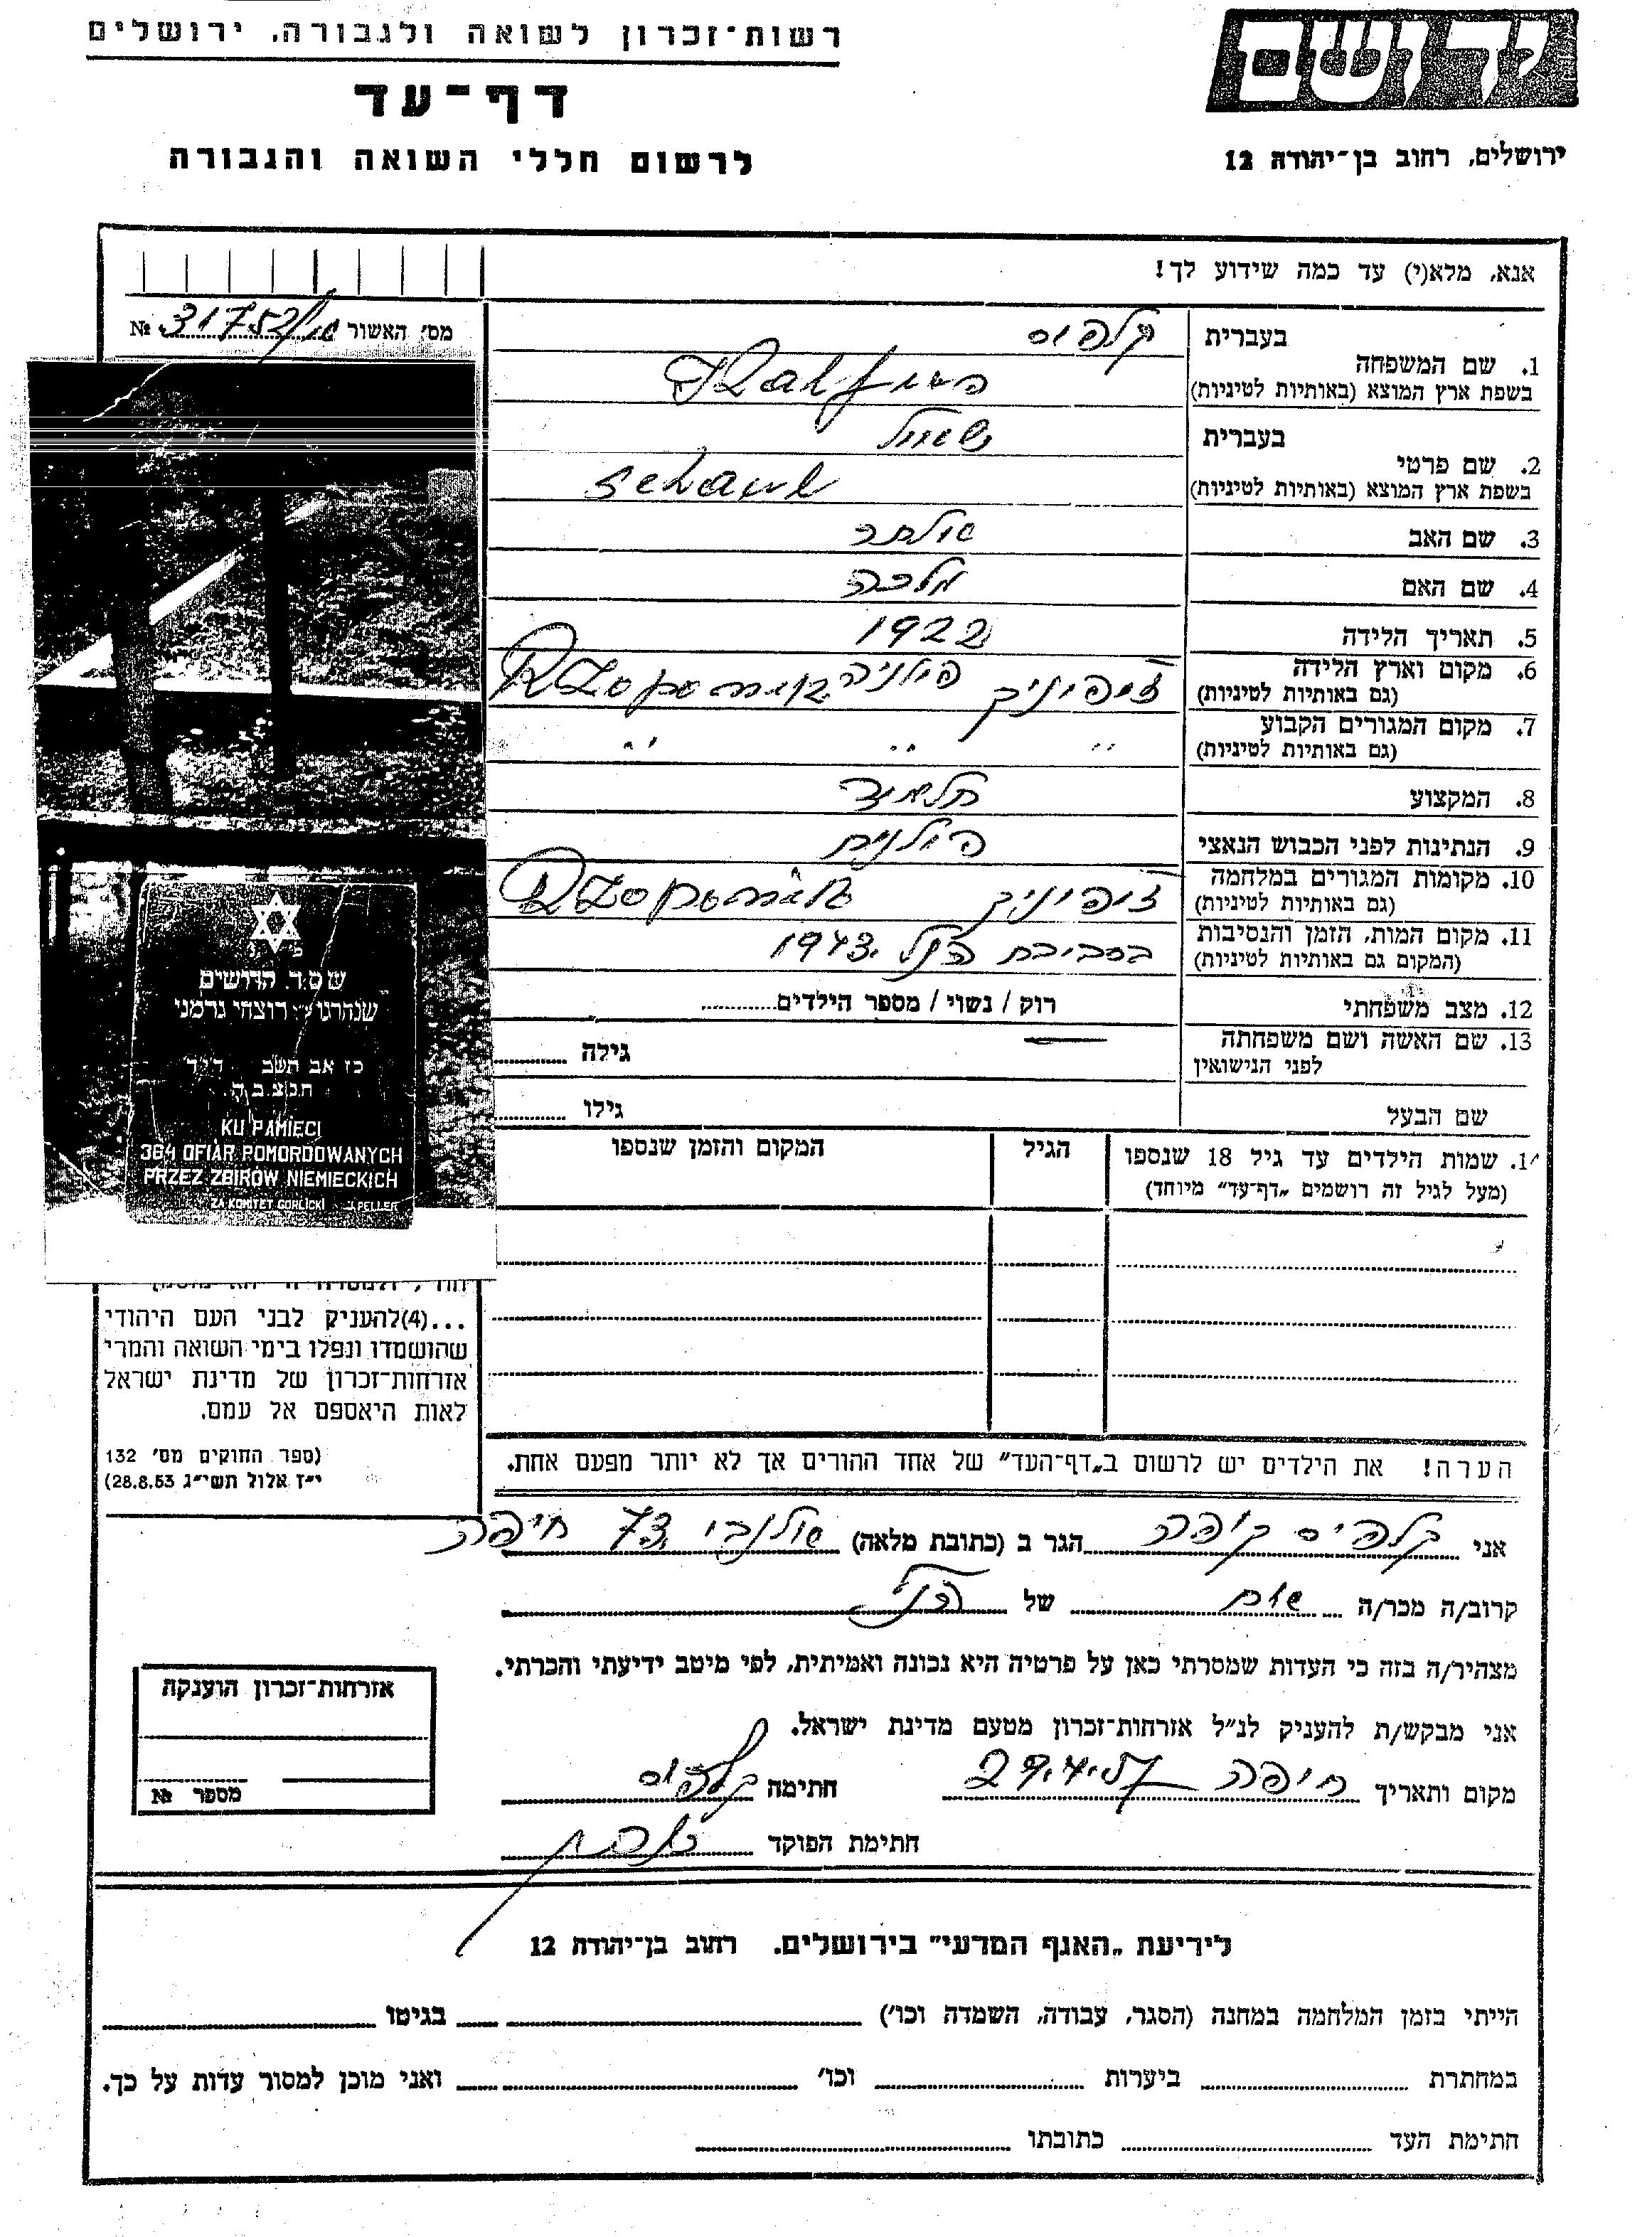 רשות-זכרון לשואה ולגבורה, ירושלים
דף-עד
לרשום חללי השואה והגבורה
ירושלים, רחוב בן-יהודה 12
אנא, מלא(י) עד כמה שידוע לך!
מס׳ האשור № 31752
1. שם המשפחה בעברית קלפוס
בשפת ארץ המוצא (באותיות לטיניות) Kalfus
2. שם פרטי בעברית שאול
בשפת ארץ המוצא (באותיות לטיניות) Schaul
3. שם האב
4. שם האם מלכה
5. תאריך הלידה 1922
6. מקום וארץ הלידה (גם באותיות לטיניות) פולניה
7. מקום המגורים הקבוע (גם באותיות לטיניות) " " "
8. המקצוע תלמיד
9. הנתינות לפני הכבוש הנאצי פולנית
10. מקומות המגורים במלחמה (גם באותיות לטיניות)
11. מקום המות, הזמן והנסיבות (המקום גם באותיות לטיניות) בסביבת הנ״ל 1943
12. מצב משפחתי רוק / נשוי / מספר הילדים
13. שם האשה ושם משפחתה לפני הנישואין — גילה
שם הבעל גילו
שמות הילדים עד גיל 18 שנספו הגיל המקום והזמן שנספו
(מעל לגיל זה רושמים „דף-עד" מיוחד)
הקדושים
כז אב תשב
ת.נ.צ.ב.ה.
KU PAMIECI
364 OFIAR POMORDOWANYCH
PRZEZ ZBIRÓW NIEMIECKICH
ZA KOMITET GORLICKI J.PELLER
...(4)להעניק לבני העם היהודי
שהושמדו ונפלו בימי השואה והמרי
אזרחות-זכרון של מדינת ישראל
לאות היאספם אל עמם.
(ספר החוקים מס׳ 132
י״ז אלול תשי״ג 28.8.53)
הערה! את הילדים יש לרשום ב„דף-העד" של אחד ההורים אך לא יותר מפעם אחת.
אני קלפוס הגר ב (כתובת מלאה) 73 חיפה
קרוב/ה מכר/ה של הנ״ל
מצהיר/ה בזה כי העדות שמסרתי כאן על פרטיה היא נכונה ואמיתית, לפי מיטב ידיעתי והכרתי.
אני מבקש/ת להעניק לנ״ל אזרחות-זכרון מטעם מדינת ישראל.
מקום ותאריך חיפה 29.4.57 חתימה קלפוס
חתימת הפוקד
אזרחות-זכרון הוענקה
מספר №
ליריעת „האגף המדעי" בירושלים, רחוב בן-יהודה 12
הייתי בזמן המלחמה במחנה (הסגר, עבודה, השמדה וכו׳) בגיטו
במחתרת ביערות וכו׳ ואני מוכן למסור עדות על כך.
חתימת העד כתובתו